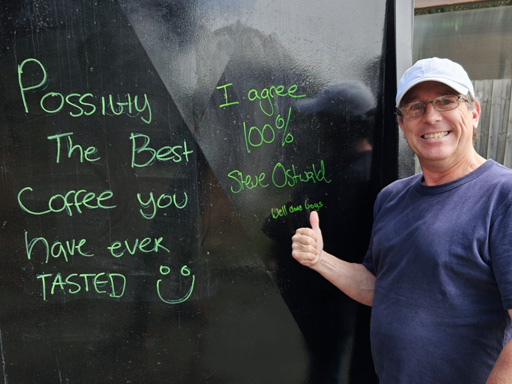 Possibly
The Best
Coffee you
have ever
TASTED
I agree
100%
Steve Ostwald
Well done Guys